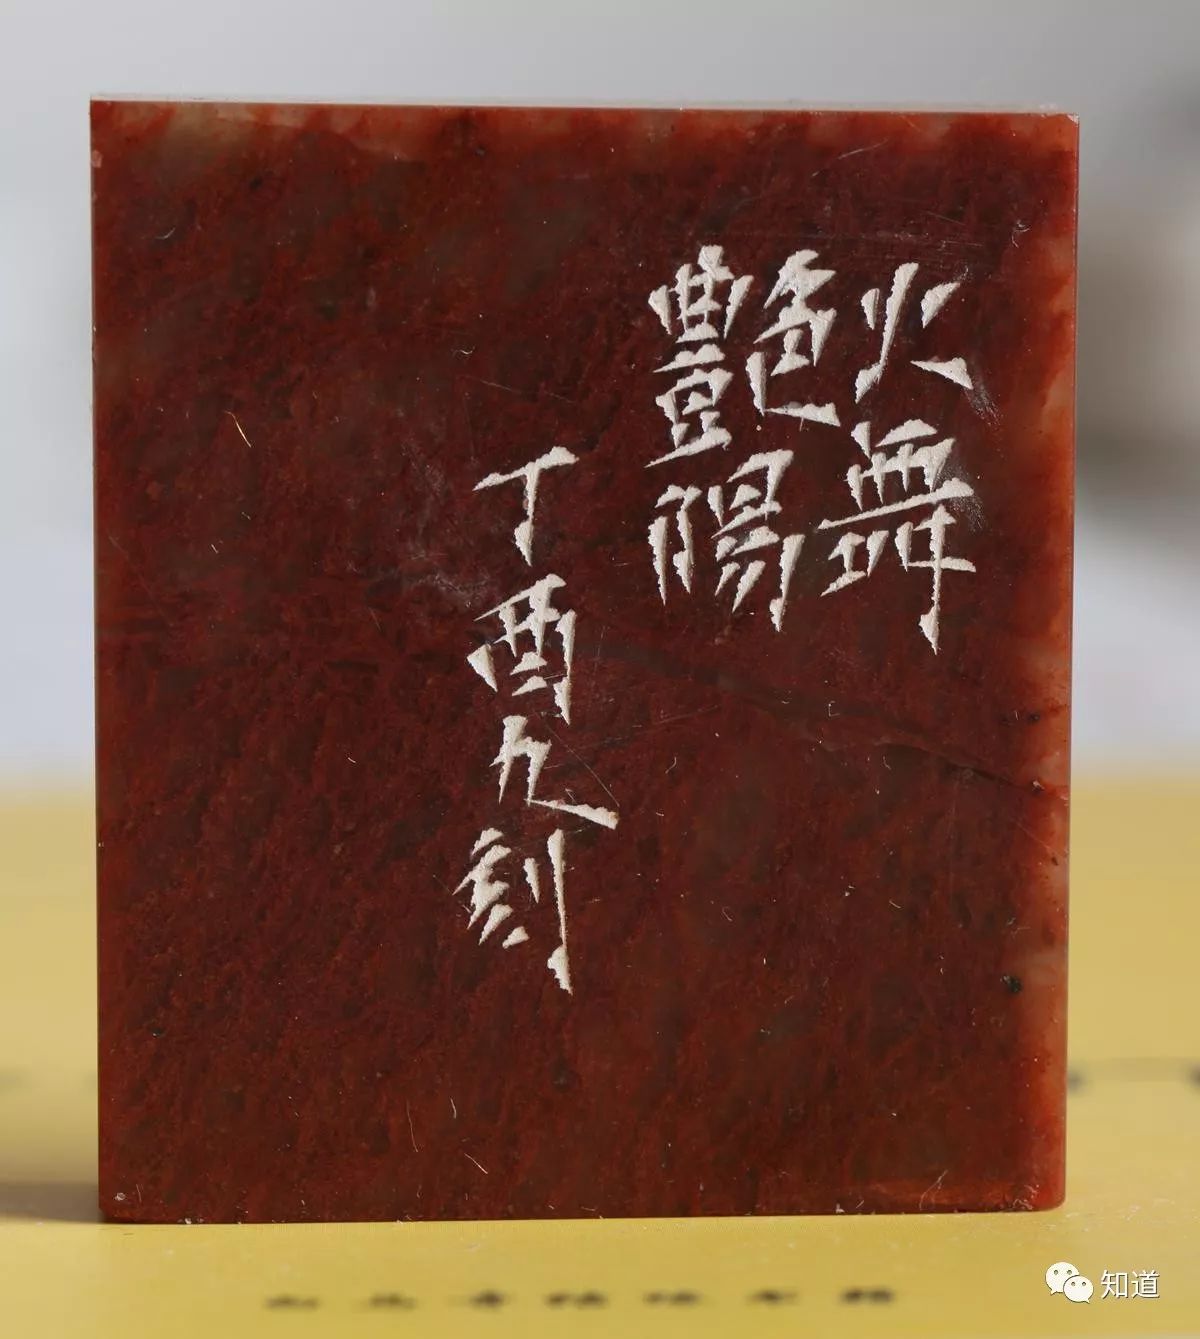 火舞
豔陽
丁酉九刻
知道